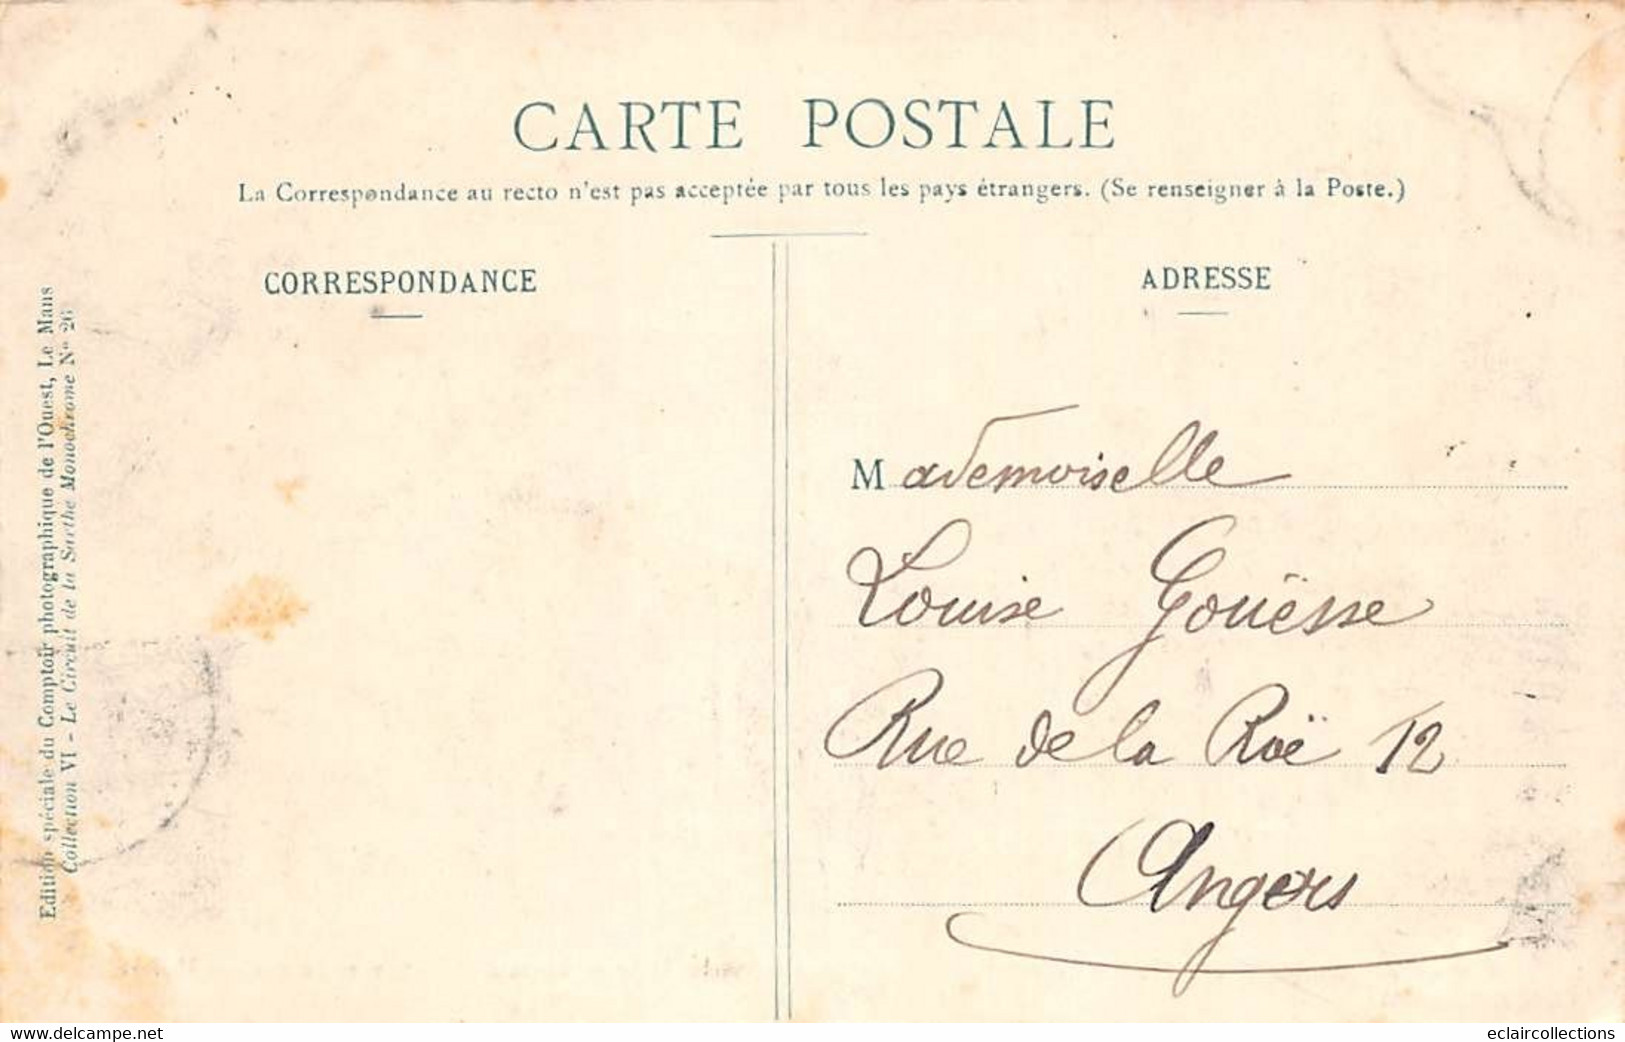 CARTE POSTALE
La Correspondance au recto n'est pas acceptée par tous les pays étrangers. (Se renseigner à la Poste.)
CORRESPONDANCE
ADRESSE
Edition spéciale du Comptoir photographique de l'Ouest, Le Mans
Collection VI - Le Circuit de la Sarthe Monochrome N° 26
Mademoiselle
Louise Gouësse
Rue de la Roë 12
Angers
www.delcampe.net
eclaircollections